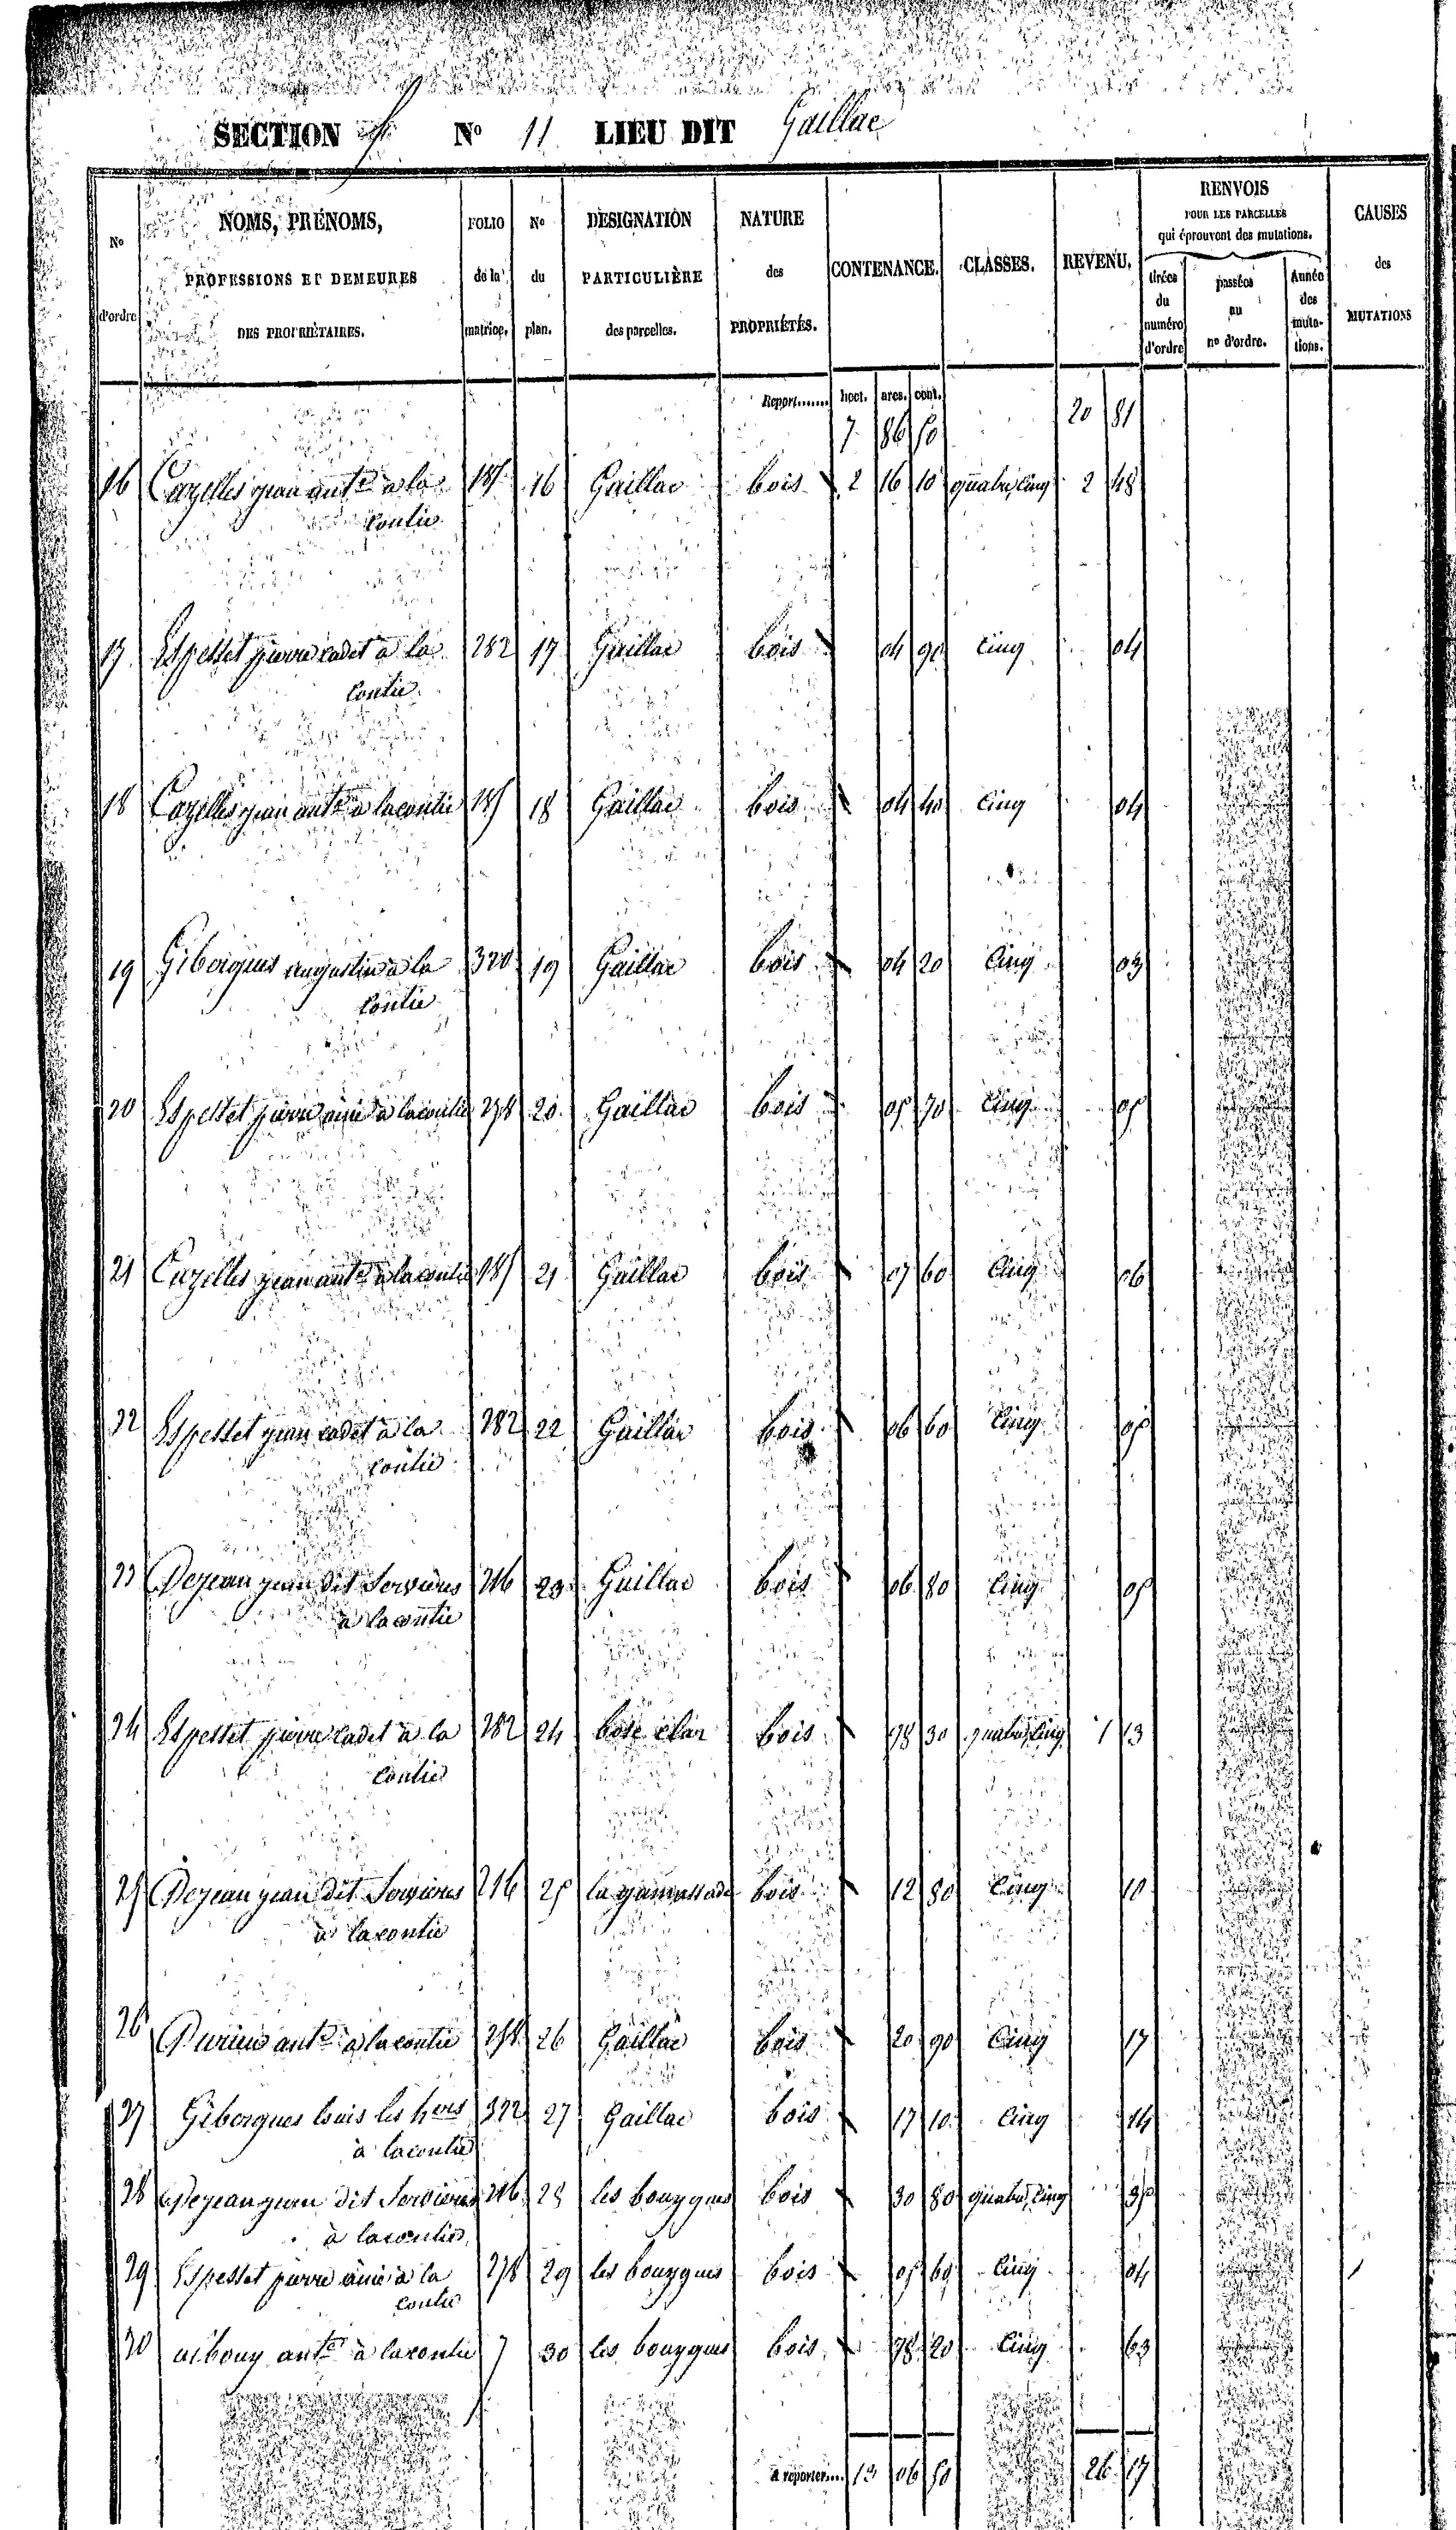 SECTION N° 11 LIEU DIT Gaillac
N° d'ordre
NOMS, PRÉNOMS, PROFESSIONS ET DEMEURES DES PROPRIÉTAIRES.
FOLIO de la matrice.
N° du plan.
DÉSIGNATION PARTICULIÈRE des parcelles.
NATURE des PROPRIÉTÉS.
CONTENANCE.
CLASSES.
REVENU.
RENVOIS POUR LES PARCELLES qui éprouvent des mutations.
tirées du numéro d'ordre
passées au n° d'ordre.
Année des muta-tions.
CAUSES des MUTATIONS
Report....... hect. ares. cent.
7 86 50 20 81
16 Cazelles jean ant.e à la 185 16 Gaillac bois 2 16 10 quatre, cinq 2 48
Coutie
17 Espesset pierre cadet à la 282 17 Gaillac bois 04 90 cinq 04
Coutie
18 Cazelles jean ant.e à lacoutie 185 18 Gaillac bois 04 40 cinq 04
19 Gibergues augustin à la 320 19 Gaillac bois 04 20 cinq 03
Coutie
20 Espesset pierre ainé à lacoutie 278 20 Gaillac bois 05 70 cinq 05
21 Cazelles jean ant.e à lacoutie 185 21 Gaillac bois 07 60 cinq 06
22 Espesset jean cadet à la 282 22 Gaillac bois 06 60 cinq 05
Coutie
23 Dejean jean dit Servières 216 23 Gaillac bois 06 80 cinq 05
à lacoutie
24 Espesset pierre cadet à la 282 24 bosc clar bois 98 30 quatre, cinq 1 13
Coutie
25 Dejean jean dit Servières 216 25 la gamassade bois 12 80 cinq 10
à lacoutie
26 Durieu ant.e à lacoutie 258 26 Gaillac bois 20 90 cinq 17
27 Gibergues louis les hers 322 27 Gaillac bois 17 10 cinq 14
à lacoutie
28 Dejean jean dit Servières 216 28 les bouygues bois 30 80 quatre, cinq 35
à lacoutie
29 Espesset pierre ainé à la 278 29 les bouygues bois 05 60 cinq 04
coutie
30 albouy ant.e à lacoutie 7 30 les bouygues bois 78 20 cinq 63
à reporter.... 13 06 50 26 17